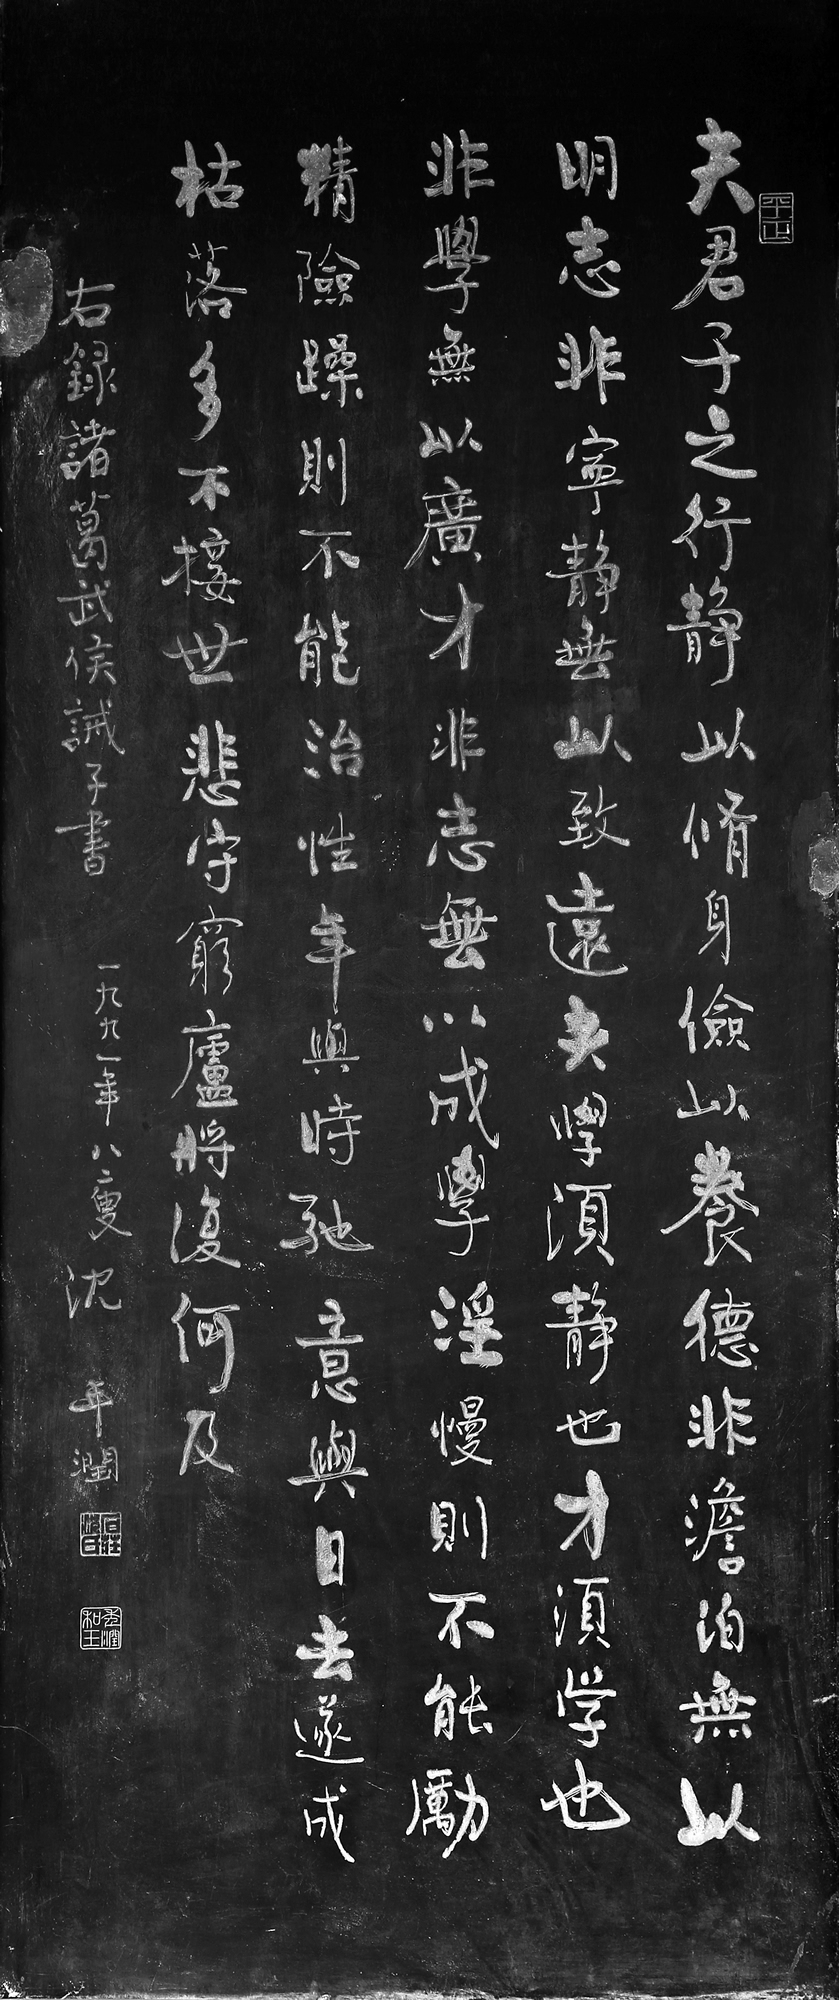 夫君子之行静以脩身儉以養德非澹泊無以
明志非寧静無以致遠夫學須静也才須学也
非學無以廣才非志無以成學淫慢則不能勵
精險躁則不能治性年與時馳意與日去遂成
枯落多不接世悲守窮廬將復何及
右録諸葛武侯誡子書
一九九一年八二叟沈年潤